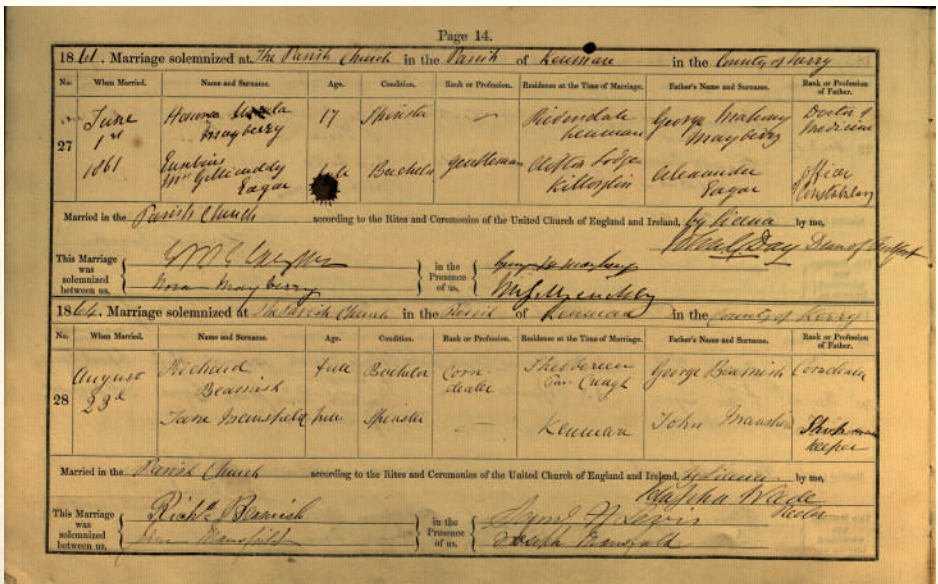 Page 14.
1861. Marriage solemnized at The Parish Church in the Parish of Kenmare in the County of Kerry
No. When Married. Name and Surname. Age. Condition. Rank or Profession. Residence at the Time of Marriage. Father's Name and Surname. Rank or Profession of Father.
27
June 1st 1861
Mayberry 17 Spinster — Kenmare George Mahony Mayberry Doctor of Medicine
Eusebius McGillicuddy Eagar full Bachelor Gentleman Lodge Killorglin Alexander Eagar Officer Constabulary
Married in the Parish Church according to the Rites and Ceremonies of the United Church of England and Ireland, by me,
Day Dean of Ardfert
This Marriage was solemnized between us,
Mayberry
in the Presence of us,
1864. Marriage solemnized at The Parish Church in the Parish of Kenmare in the County of Kerry
No. When Married. Name and Surname. Age. Condition. Rank or Profession. Residence at the Time of Marriage. Father's Name and Surname. Rank or Profession of Father.
28
August 23d
Richard Beamish full Bachelor Corn-dealer George Beamish Corn dealer
Jane Mansfield full Spinster — Kenmare John keeper
Married in the Parish Church according to the Rites and Ceremonies of the United Church of England and Ireland, by me,
Wade
Rector
This Marriage was solemnized between us,
Richd Beamish
Jane Mansfield
in the Presence of us,
Joseph Mansfield